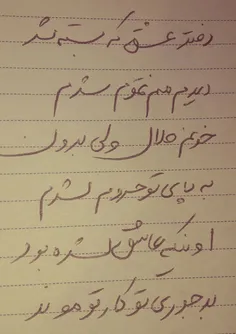 دفتر عشق که بسته شد
دیدم منم تموم شدم
خونم حلال ولی بدون
به پای تو حروم شدم
اونکه عاشق شده بود
بدجوری تو کار تو موند